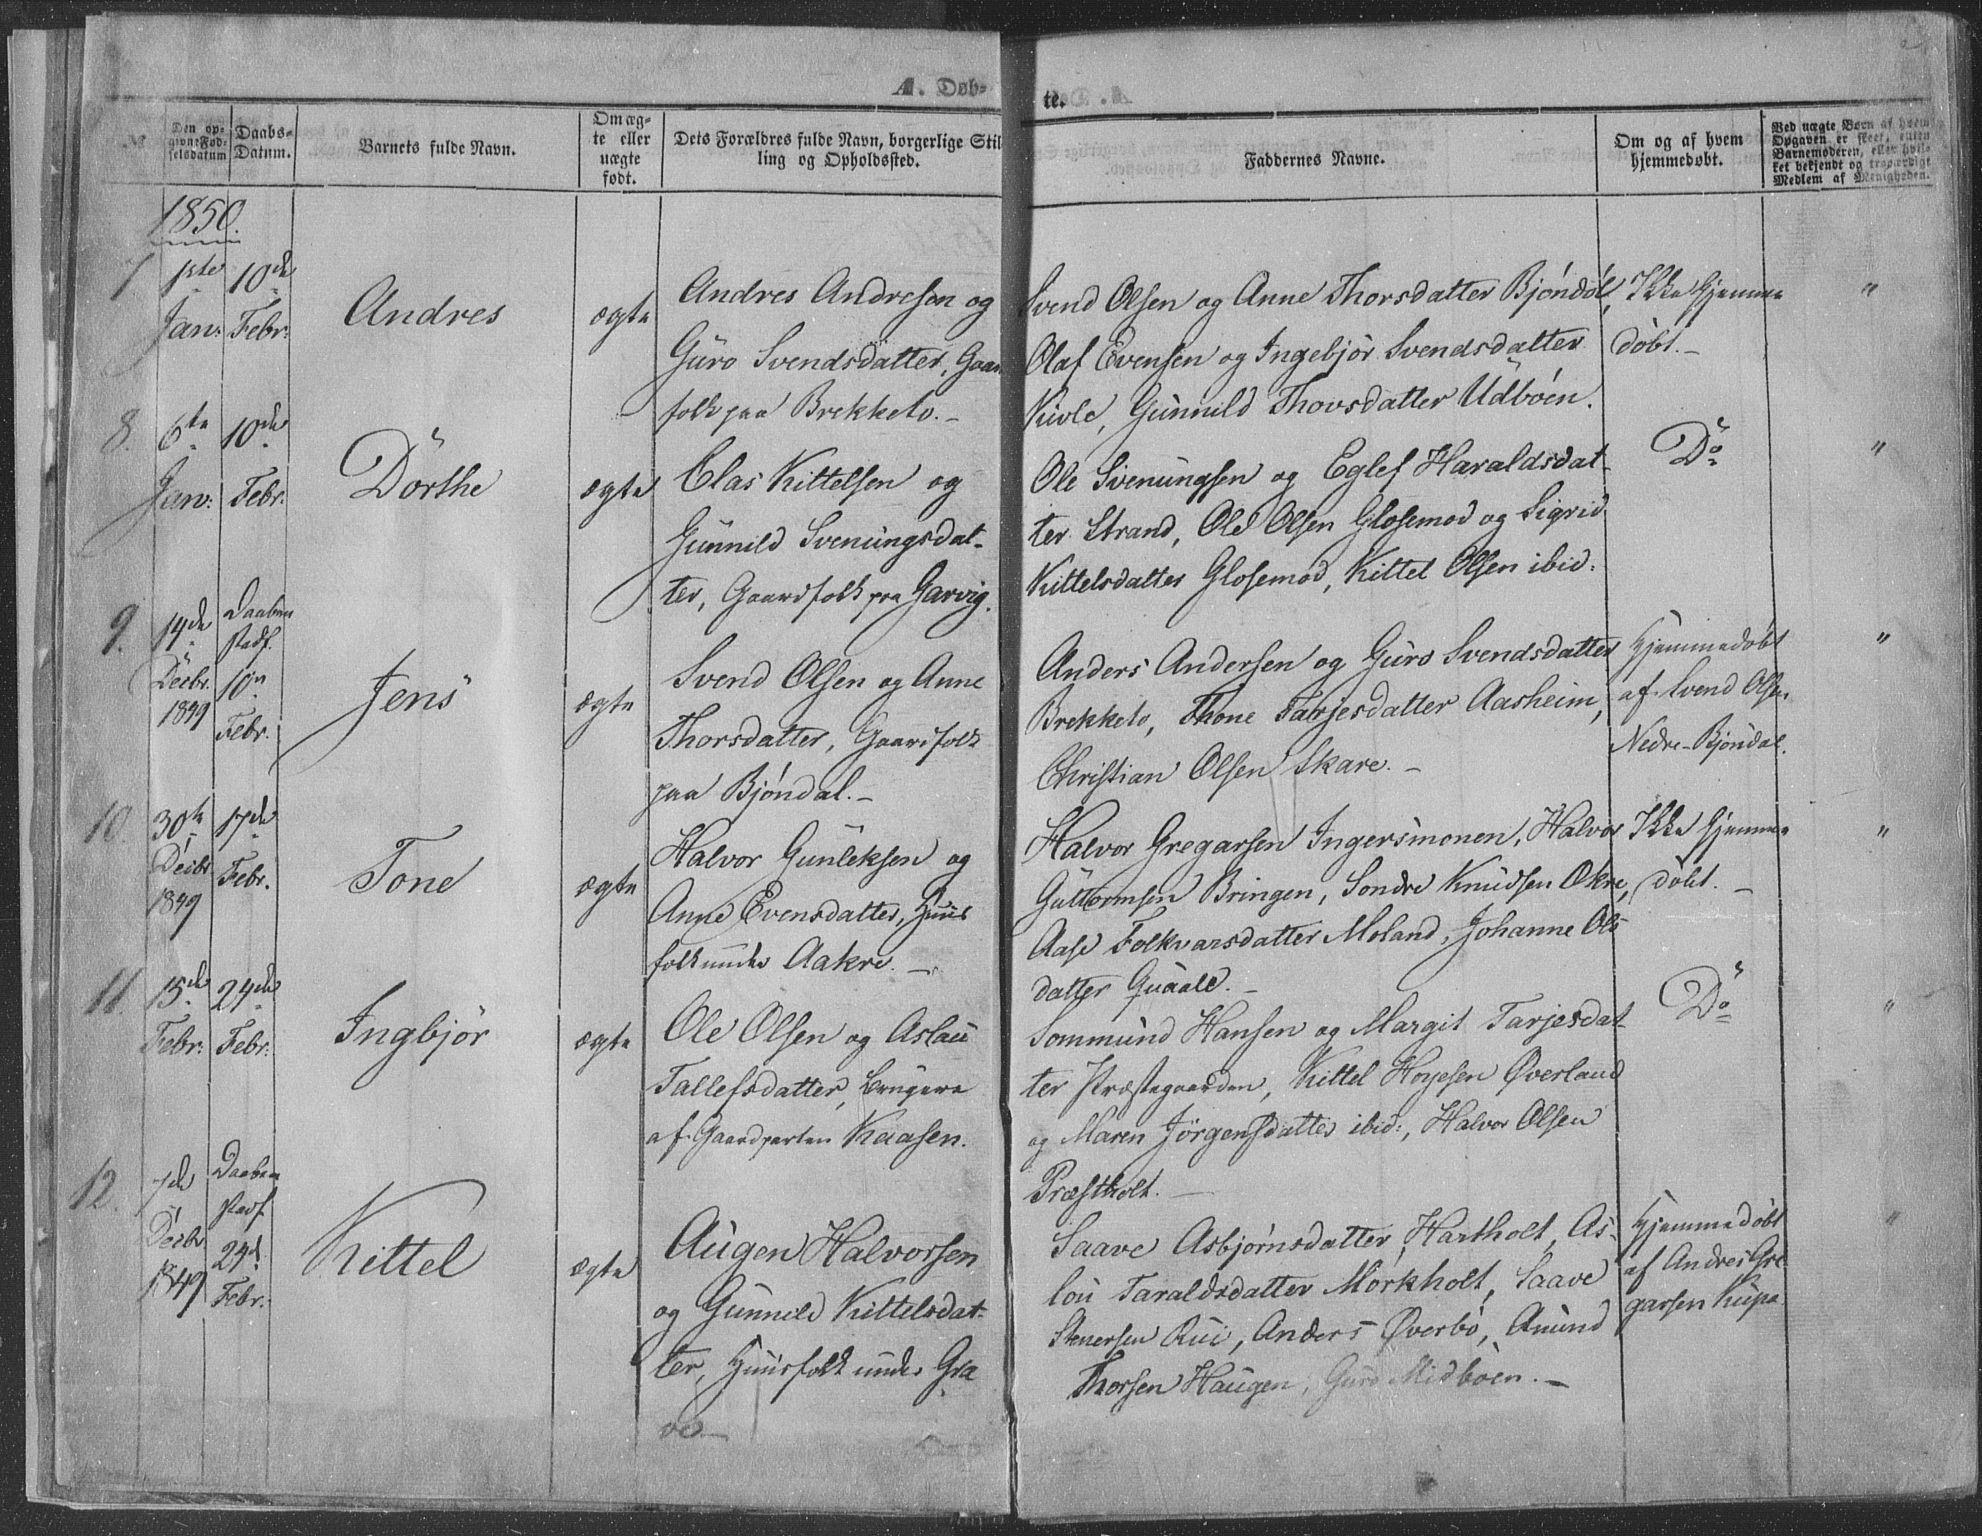 A. Døb-
te.
№
Den op-
givne Fød-
selsdatum
Daabs-
Datum.
Barnets fulde Navn.
Om æg-
te eller
uægte
født.
Dets Forældres fulde Navn, borgerlige Stil-
ling og Opholdssted.
Faddernes Navne.
Om og af hvem
hjemmedøbt.
Ved uægte Børn af hvem
Opgaven er skeet, enten
Barnemoderen, eller hvil-
ket bekjendt og troværdigt
Medlem af Menigheden.
1850.
7
1ste
Jan:
10de
Febr:
Andres
ægte
Andres Andresen og
Guro Svendsdatter, Gaard
folk paa Brekketo. -
Svend Olsen og Anne Thorsdatter Bjöndöl,
Olaf Evensen og Ingebjör Svendsdatter
Kivle, Gunnild Thovsdatter Udböen.
Ikke Hjemme
döbt. -
"
8.
6te
Jan:
10de
Febr:
Dörthe
ægte
Clas Kittelsen og
Gunnild Svenungsdat-
ter, Gaardfolk paa Garvig.
Ole Svenungsen og Eglef Haraldsdat-
ter Strand, Ole Olsen Glosemod og Sigrid
Kittelsdatter Glosemod, Kittel Olsen ibid:
Do
"
9.
14de
Decbr.
1849
Daaben
stadf.
10n
Febr.
Jens
ægte
Svend Olsen og Anne
Thorsdatter, Gaardfolk
paa Bjöndal. -
Anders Andersen og Guro Svendsdatter
Brekketo, Thone Tarjesdatter Aasheim,
Christian Olsen Skare. -
Hjemmedöbt
af Svend Olsen
Nedre-Bjöndal.
"
10.
30te
Decbr.
1849
17de
Febr.
Tone
ægte
Halvor Gunleksen og
Anne Evensdatter, Huus
folk under Aakre. -
Halvor Gregarsen Ingersmonen, Halvor
Guttormsen Bringen, Sondre Knudsen Okre,
Aase Folkvarsdatter Moland, Johanne Ols
datter Quaale. -
Ikke Hjemme
döbt. -
"
11.
15de
Febr:
24de
Febr:
Ingbjör
ægte
Ole Olsen og Aslau
Tallefsdatter, Brugere
af Gaardparten Kaasen.
Sommund Hansen og Margit Tarjesdat-
ter Præstegaarden, Kittel Hoyesen Øverland
og Maren Jörgensdatter ibid:, Halvor Olsen
Præstholt. -
Do
"
12.
7de
Decbr
1849
Daaben
stadf
24d.
Febr:
Kittel
ægte
Augen Halvorsen
og Gunnild Kittelsdat-
ter, Huusfolk under Gra
ve. -
Saave Asbjørnsdatter Hartholt, As-
lou Taraldsdatter Mörkholt, Saave
Stenersen Rui, Anders Øverbö, Amund
Thorsen Haugen, Guro Midböen. -
Hjemmedöbt
af Andres Gre
garsen Kupa
"